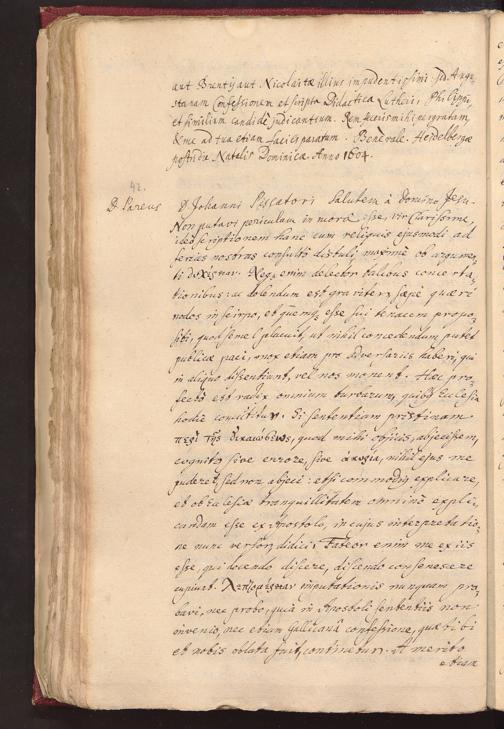 aut Brentij aut Nicolaitæ illius impudentissimi: sed Augu-
stanam Confessionem et scripta Didactica Lutheri, Philippi,
et similium candide judicantium. Rem feceris mihi pergratam,
& me ad tua etiam facies paratum. Benè vale. Heidelbergæ
postridie Natalis Dominicæ. Anno 1604.
42.
D. Pareus
D. Johanni Piscatori Salutem à Domino Jesu.
Non putavi periculum in morâ esse, vir Clarissime,
ideò scriptionem hanc cum reliquis ejusmodi ad
ferias nostras consultò distuli, maximè ob argumen-
ti Neq; enim delector talibus concerta-
tionibus: ac dolendum est graviter, sæpè quæri
nodos in scirpo, et quemq; esse sui tenacem propo-
siti, quod semel placuit, ut nihil concedendum putet
publicæ paci, mox etiam pro adversariis haberi, qui
in aliquo dissentiunt, vel nos monent. Hæc pro-
fectò est radix omnium turbarum, quibus Ecclesia
hodie concutitur. Si sententiam pristinam
περὶ τῆς δικαιώσεως, quod mihi objicis, abjecissem,
cognito sive errore, sive ἀκυρίᾳ, nihil ejus me
puderet, sed non abjeci: etsi commodiùs explicare,
et ob Ecclesiæ tranquillitatem omninò expli-
candam esse ex Apostolo, in cujus interpretatio-
ne nunc versor, didici: Fateor enim me ex iis
esse, qui docendo discere, discendo consenescere
cupiunt. imputationis nunquam pro-
bavi, nec probo, quia in Apostoli sententiis non
invenio, nec etiam Gallicanâ confessione, quæ tibi
et nobis oblata fuit, continetur. A merito
etiam